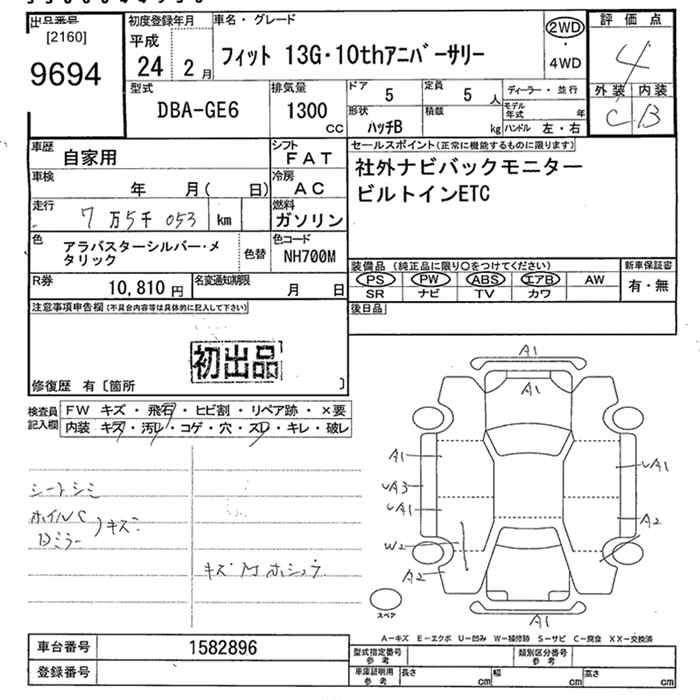 出品番号
[2160]
9694
初度登録年月
平成
24 2月
車名・グレード
フィット 13G・10thアニバーサリー
2WD
・
4WD
評価点
4
外装 内装
C B
型式
DBA-GE6
排気量
1300
cc
ドア
5
定員
5 人
形状
ハッチB
積載
kg
ディーラー・並行
モデル年式 年
ハンドル 左・右
車歴
自家用
シフト
FAT
車検
年 月( 日)
冷房
AC
走行
7万5千053 km
燃料
ガソリン
色
アラバスターシルバー・メ
タリック
色替
色コード
NH700M
R券
10,810円
名変通知期限
月 日
セールスポイント(正常に機能するものに限ります)
社外ナビバックモニター
ビルトインETC
装備品(純正品に限り○をつけてください)
PS PW ABS エアB AW
SR ナビ TV カワ
新車保証書
有・無
後日品
注意事項申告欄(不具合内容等は具体的に記入して下さい)
初出品
修復歴 有〔箇所 〕
検査員
記入欄
FW キズ・飛石・ヒビ割・リペア跡・×要
内装 キズ・汚レ・コゲ・穴・スレ・キレ・破レ
シートシミ
ホイルC
Dミラー
)キズ
キズ凹ホシュウ
A1
A1
A1
UA3
UA1
W2
A2
UA1
A2
A1
スペア
A-キズ E-エクボ U-凹み W-補修跡 S-サビ C-腐食 XX-交換済
車台番号
1582896
登録番号
型式指定番号
参考
類別区分番号
参考
車庫証明用
参考
長さ cm
幅 cm
高さ cm